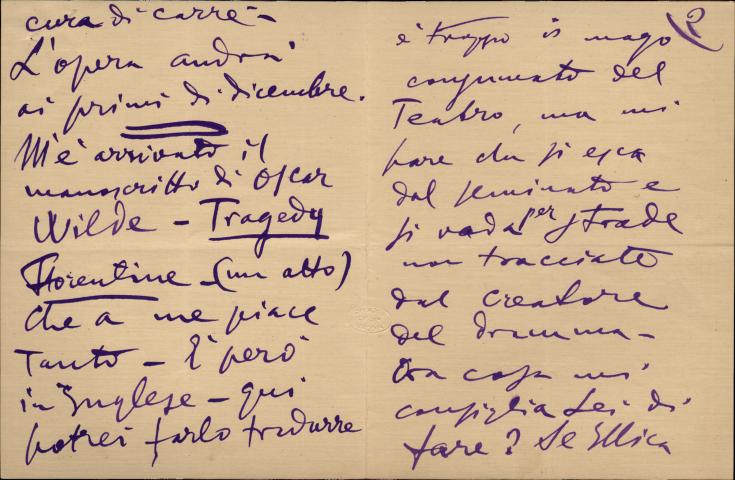 cura di Carré -
L'opera andrà
ai primi di dicembre.
M'è arrivato il
manoscritto di Oscar
Wilde - Tragedy
Florentine - (un atto)
che a me piace
tanto - È però
in Inglese - qui
potrei farlo tradurre
2
è troppo is mago
consumato del
Teatro, ma mi
pare che si esca
dal seminato e
si vada per strade
non tracciate
dal creatore
del dramma -
Ora cosa mi
consiglia Lei di
fare? Se Illica